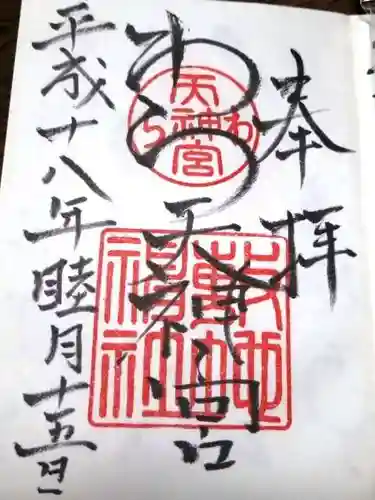 奉拝
わら天神宮
わら天神宮
敷地神社
平成十八年睦月十五日